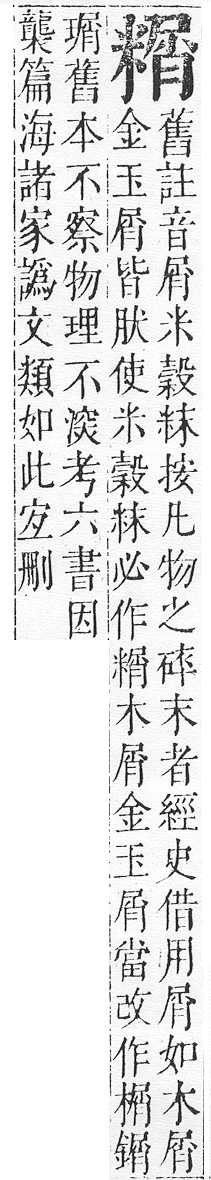 糏
舊註音屑米穀粖按凡物之碎末者經史借用屑如木屑
金玉屑皆肰使米穀粖必作糏木屑金玉屑當改作榍
舊本不察物理不湥考六書因
襲篇海諸家譌文類如此宐刪